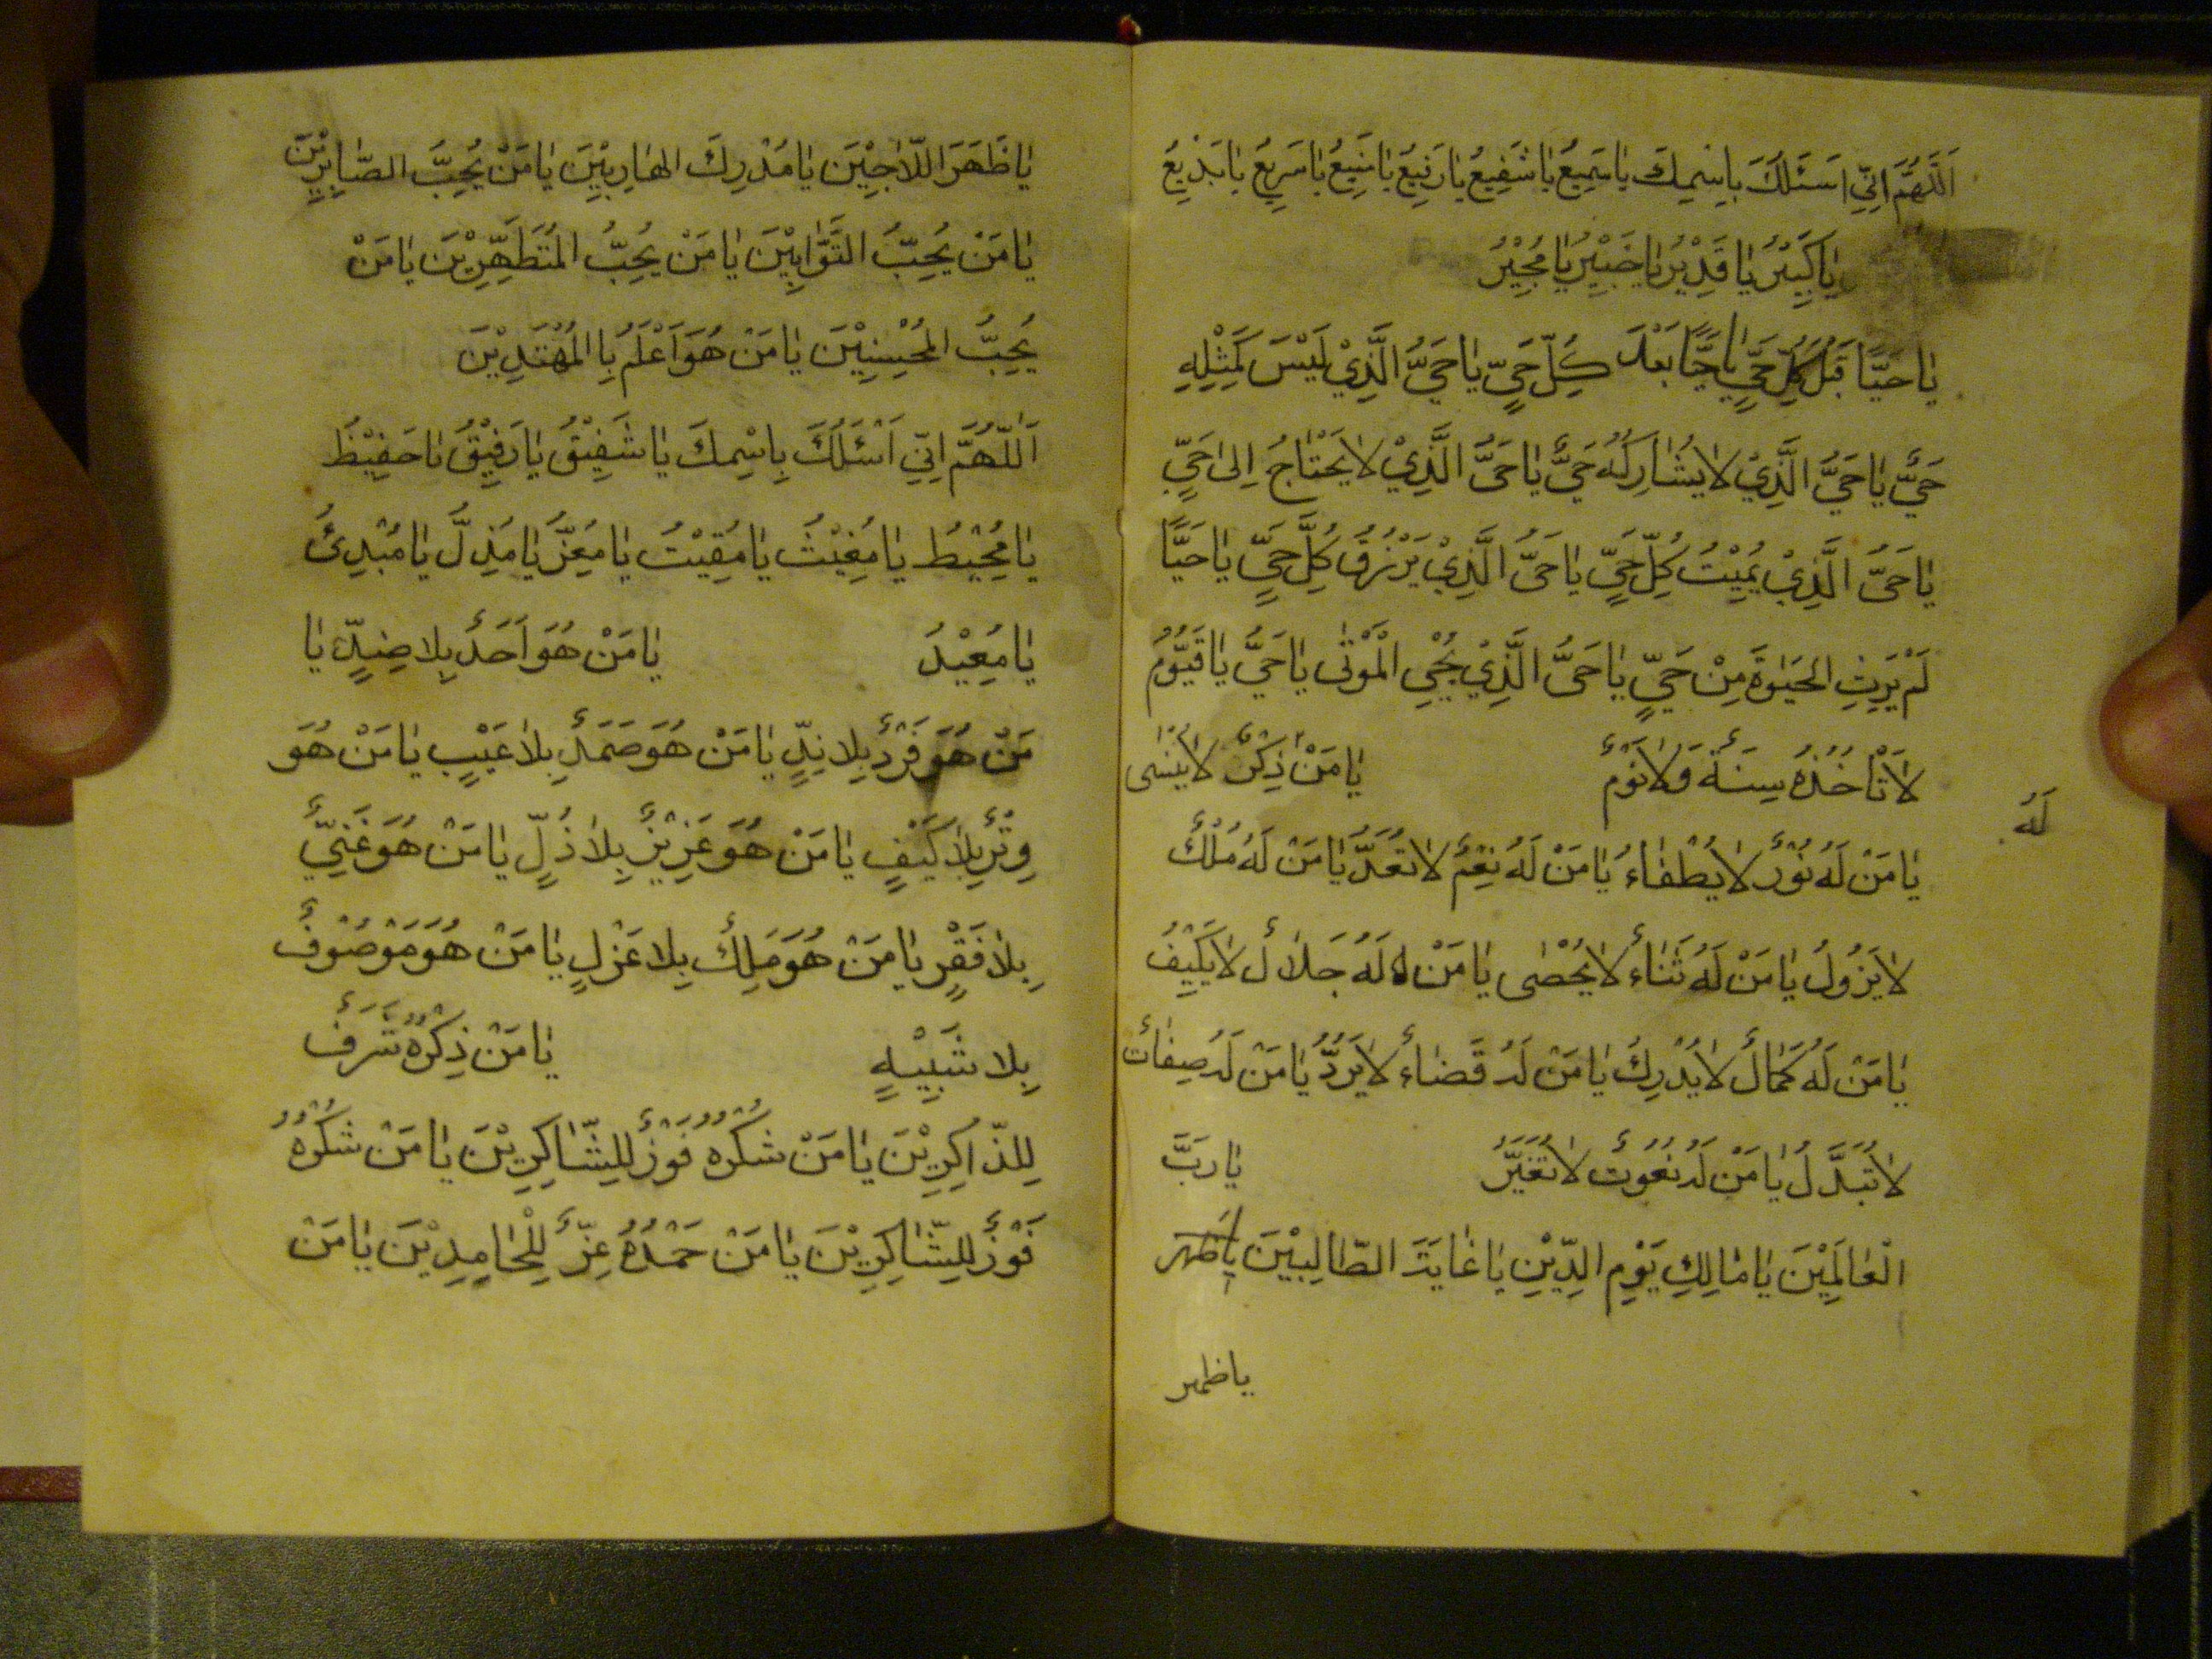 اَللّٰهُمَّ اِنِّي اَسْئَلُكَ بِاسْمِكَ يَا سَمِيعُ يَا شَفِيعُ يَا رَفِيعُ يَا مَنِيعُ يَا سَرِيعُ يَا بَدِيعُ
يَا كَبِيْرُ يَا قَدِيْرُ يَا خَبِيْرُ يَا مُجِيْرُ
يَا حَيًّا قَبْلَ كُلِّ حَيٍّ يَا حَيًّا بَعْدَ كُلِّ حَيٍّ يَا حَيُّ الَّذِيْ لَيْسَ كَمِثْلِهِ
حَيٌّ يَا حَيُّ الَّذِيْ لَا يُشَارِكُهُ حَيٌّ يَا حَيُّ الَّذِيْ لَا يَحْتَاجُ اِلٰى حَيٍّ
يَا حَيُّ الَّذِيْ يُمِيْتُ كُلَّ حَيٍّ يَا حَيُّ الَّذِيْ يَرْزُقُ كُلَّ حَيٍّ يَا حَيًّا
لَمْ يَرِثِ الْحَيٰوةَ مِنْ حَيٍّ يَا حَيُّ الَّذِيْ يُحْيِ الْمَوْتٰى يَا حَيُّ يَا قَيُّوْمُ
لَا تَاْخُذُهُ سِنَةٌ وَلَا نَوْمٌ يَا مَنْ ذِكْرٌ لَا يُنْسٰى
لَهُ
يَا مَنْ لَهُ نُوْرٌ لَا يُطْفَاءُ يَا مَنْ لَهُ نِعَمٌ لَا تُعَدُّ يَا مَنْ لَهُ مُلْكٌ
لَا يَزُوْلُ يَا مَنْ لَهُ ثَنَاءٌ لَا يُحْصٰى يَا مَنْ لَهُ جَلَالٌ لَا يُكَيَّفُ
يَا مَنْ لَهُ كَمَالٌ لَا يُدْرَكُ يَا مَنْ لَهُ قَضَاءٌ لَا يُرَدُّ يَا مَنْ لَهُ صِفَاتٌ
لَا تُبَدَّلُ يَا مَنْ لَهُ نُعُوْتٌ لَا تُغَيَّرُ يَا رَبَّ
الْعَالَمِيْنَ يَا مَالِكِ يَوْمِ الدِّيْنِ يَا غَايَةَ الطَّالِبِيْنَ يَا ظَهَرَ
يا ظهر
يَا ظَهَرَ اللَّاجِيْنَ يَا مُدْرِكَ الْهَارِبِيْنَ يَا مَنْ يُحِبُّ الصَّابِرِيْنَ
يَا مَنْ يُحِبُّ التَّوَّابِيْنَ يَا مَنْ يُحِبُّ الْمُتَطَهِّرِيْنَ يَا مَنْ
يُحِبُّ الْمُحْسِنِيْنَ يَا مَنْ هُوَ اَعْلَمُ بِا الْمُهْتَدِيْنَ
اَللّٰهُمَّ اِنِّي اَسْئَلُكَ بِاسْمِكَ يَا شَفِيْقُ يَا رَفِيْقُ يَا حَفِيْظُ
يَا مُحِيْطُ يَا مُغِيْثُ يَا مُقِيْتُ يَا مُعِزُّ يَا مُذِلُّ يَا مُبْدِئُ
يَا مُعِيْدُ يَا مَنْ هُوَ اَحَدٌ بِلَا ضِدٍّ يَا
مَنْ هُوَ فَرْدٌ بِلَا نِدٍّ يَا مَنْ هُوَ صَمَدٌ بِلَا عَيْبٍ يَا مَنْ هُوَ
وِتْرٌ بِلَا كَيْفٍ يَا مَنْ هُوَ عَزِيْزٌ بِلَا ذُلٍّ يَا مَنْ هُوَ غَنِيٌّ
بِلَا فَقْرٍ يَا مَنْ هُوَ مَلِكٌ بِلَا عَزْلٍ يَا مَنْ هُوَ مَوْصُوْفٌ
بِلَا شَبِيْهٍ يَا مَنْ ذِكْرُهُ شَرَفٌ
لِلذَّاكِرِيْنَ يَا مَنْ شُكْرُهُ فَوْزٌ لِلشَّاكِرِيْنَ يَا مَنْ شُكْرُهُ
فَوْزٌ لِلشَّاكِرِيْنَ يَا مَنْ حَمْدُهُ عِزٌّ لِلْحَامِدِيْنَ يَا مَنْ